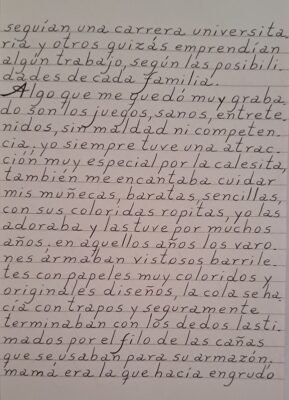 seguían una carrera universita
ria y otros quizás emprendían
algún trabajo, según las posibili-
dades de cada familia.
Algo que me quedó muy graba
do son los juegos, sanos, entrete-
nidos, sin maldad ni competen-
cia, yo siempre tuve una atrac-
ción muy especial por la calesita,
también me encantaba cuidar
mis muñecas, baratas, sencillas,
con sus coloridas ropitas, yo las
adoraba y las tuve por muchos
años; en aquellos años los varo-
nes armaban vistosos barrile-
tes con papeles muy coloridos y
originales diseños, la cola se ha-
cía con trapos y seguramente
terminaban con los dedos lasti-
mados por el filo de las cañas
que se usaban para su armazón.
mamá era la que hacía engrudo